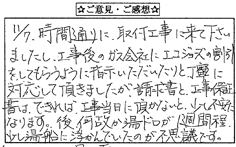 ☆ご意見・ご感想☆
11/7、時間通りに、取付工事に来て下さい
ましたし、工事後のガス会社にエコジョーズの割引
をしてもらうように指示いただいたりと丁寧に
対応して頂きましたが、請求書と、工事保証
書は、できれば工事当日に頂かないと、少し不安に
なります。後、何故か湯ドロが1週間程
少し湯船に浮かんでいたのが不思議です。